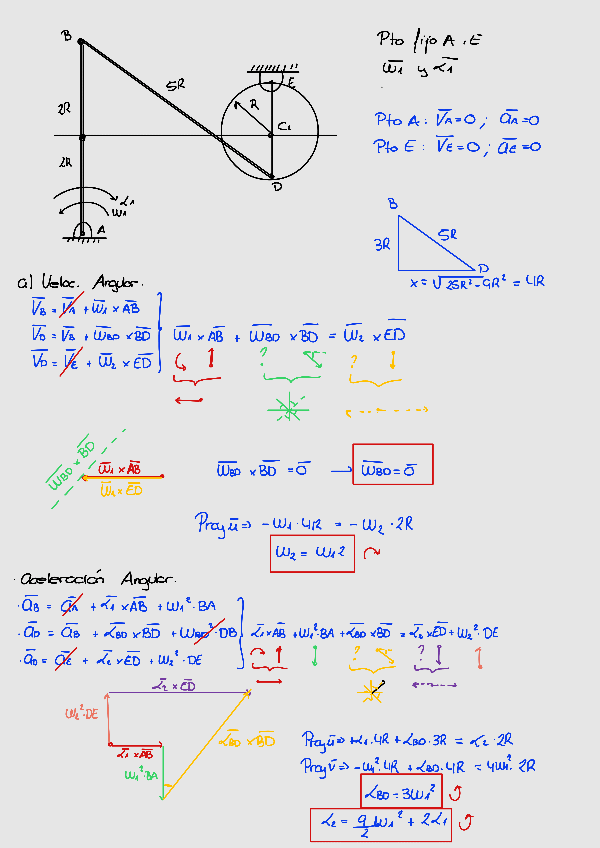 Pto fijo A · E
ω̅₁ y α̅₁
Pto A : V̅A = 0 ; a̅A = 0
Pto E : V̅E = 0 ; a̅E = 0
B
2R
5R
E
R
C₁
2R
D
α₁
ω₁
A
B
3R
5R
D
x = √25R² - 9R² = 4R
a) Veloc. Angular.
V̅B = V̅A + ω̅₁ × A̅B̅
V̅D = V̅B + ω̅BD × B̅D̅
V̅D = V̅E + ω̅₂ × E̅D̅
ω̅₁ × A̅B̅ + ω̅BD × B̅D̅ = ω̅₂ × E̅D̅
? ?
ω̅BD × B̅D̅
ω̅₁ × A̅B̅
ω̅₁ × E̅D̅
ω̅BD × B̅D̅ = 0̅ → ω̅BD = 0̅
Proy u̅ ⇒ -ω₁ · 4R = -ω₂ · 2R
ω₂ = ω₁ 2
· Aceleración Angular.
· a̅B = a̅A + α̅₁ × A̅B̅ + ω₁² · BA
· a̅D = a̅B + α̅BD × B̅D̅ + ωBD² · DB
· a̅D = a̅E + α̅₂ × E̅D̅ + ω₂² · DE
α̅₁ × A̅B̅ + ω₁² · BA + α̅BD × B̅D̅ = α̅₂ × E̅D̅ + ω₂² · DE
? ?
α̅₂ × E̅D̅
ω₂² · DE
α̅BD × B̅D̅
α̅₁ × A̅B̅
ω₁² · BA
Proy u̅ ⇒ +α₁ · 4R + αBD · 3R = α₂ · 2R
Proy v̅ ⇒ -ω₁² · 4R + αBD · 4R = 4ω₁² · 2R
αBD = 3ω₁²
α₂ = 9/2 ω₁² + 2α₁